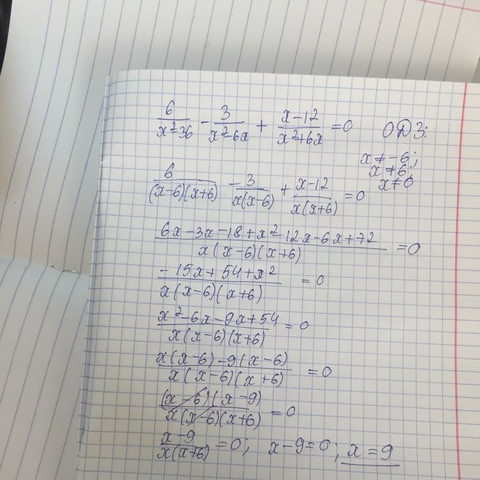 6/(x²-36) - 3/(x²-6x) + (x-12)/(x²+6x) = 0 ОДЗ:
x≠-6;
x≠6;
x≠0
6/((x-6)(x+6)) - 3/(x(x-6)) + (x-12)/(x(x+6)) = 0
(6x-3x-18+x²-12x-6x+72)/(x(x-6)(x+6)) = 0
(-15x+54+x²)/(x(x-6)(x+6)) = 0
(x²-6x-9x+54)/(x(x-6)(x+6)) = 0
(x(x-6)-9(x-6))/(x(x-6)(x+6)) = 0
((x-6)(x-9))/(x(x-6)(x+6)) = 0
(x-9)/(x(x+6)) = 0; x-9=0; x=9